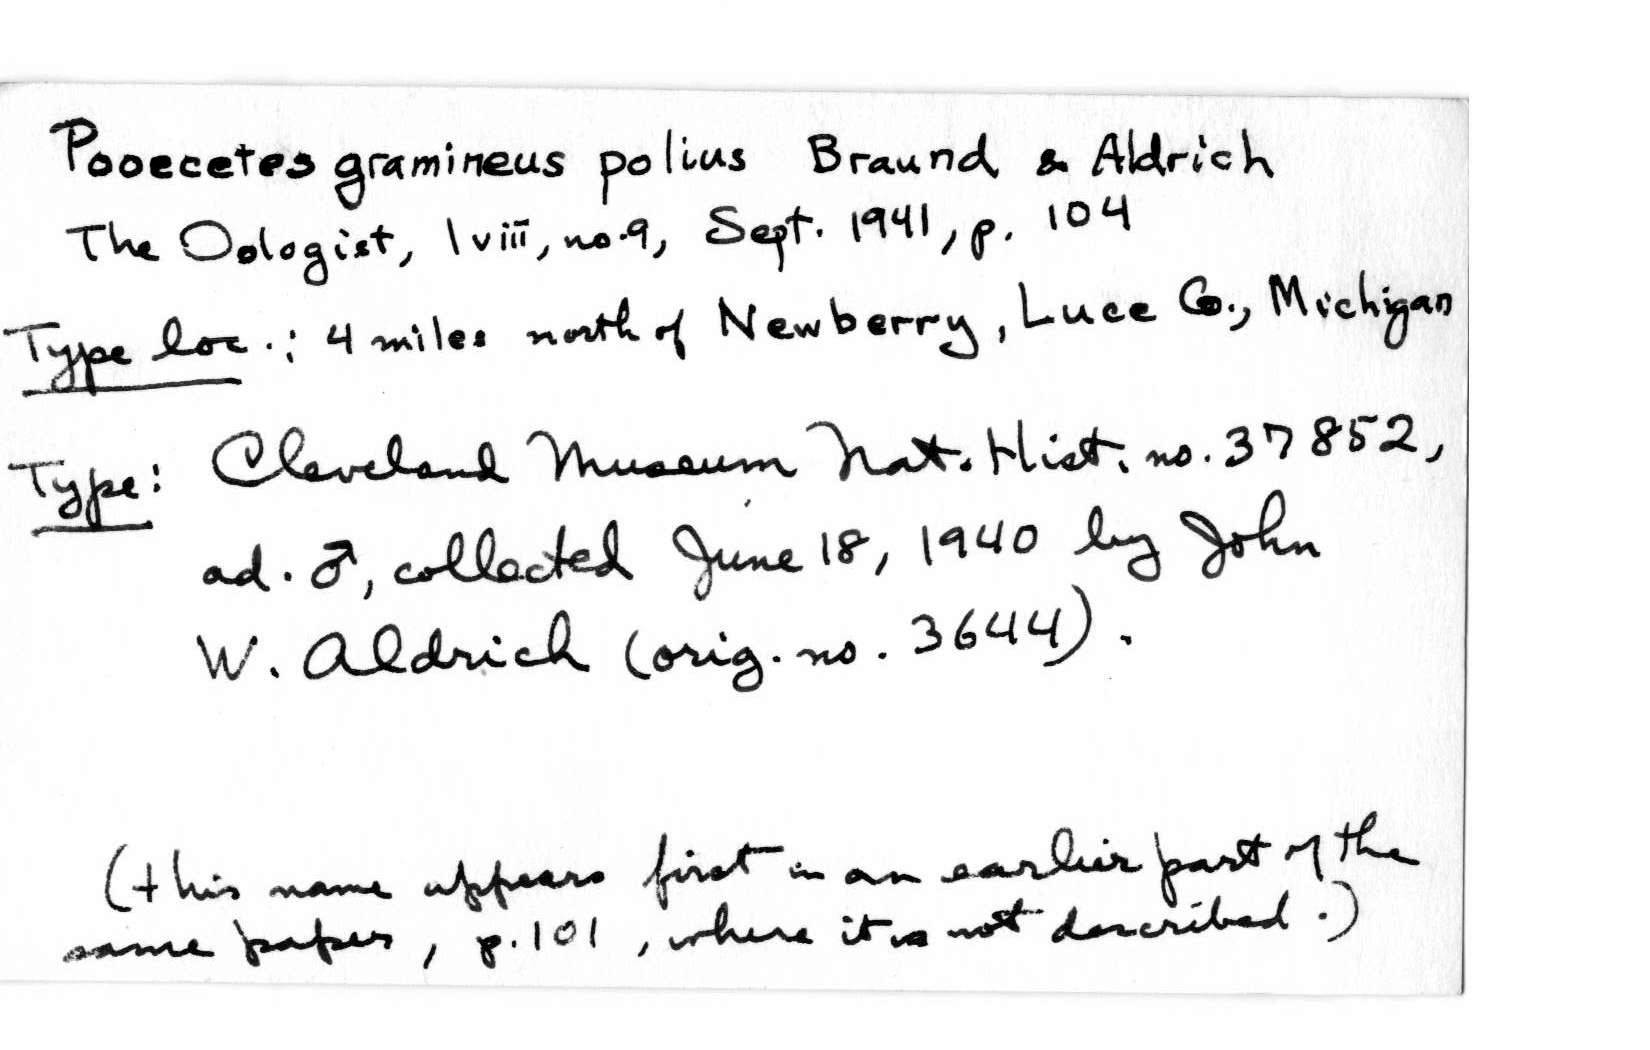 Pooecetes gramineus polius Braund & Aldrich
The Oologist, lviii, no. 9, Sept. 1941, p. 104
Type loc.: 4 miles north of Newberry, Luce Co., Michigan
Type: Cleveland Museum Nat. Hist. no. 37852,
ad. ♂, collected June 18, 1940 by John
W. Aldrich (orig. no. 3644).
(this name appears first in an earlier part of the
same paper, p. 101, where it is not described.)